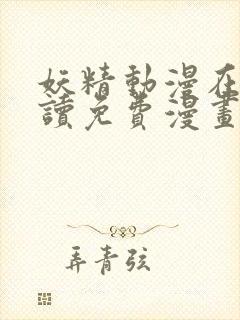 妖精動漫在
讀免費漫畫
弄青弦